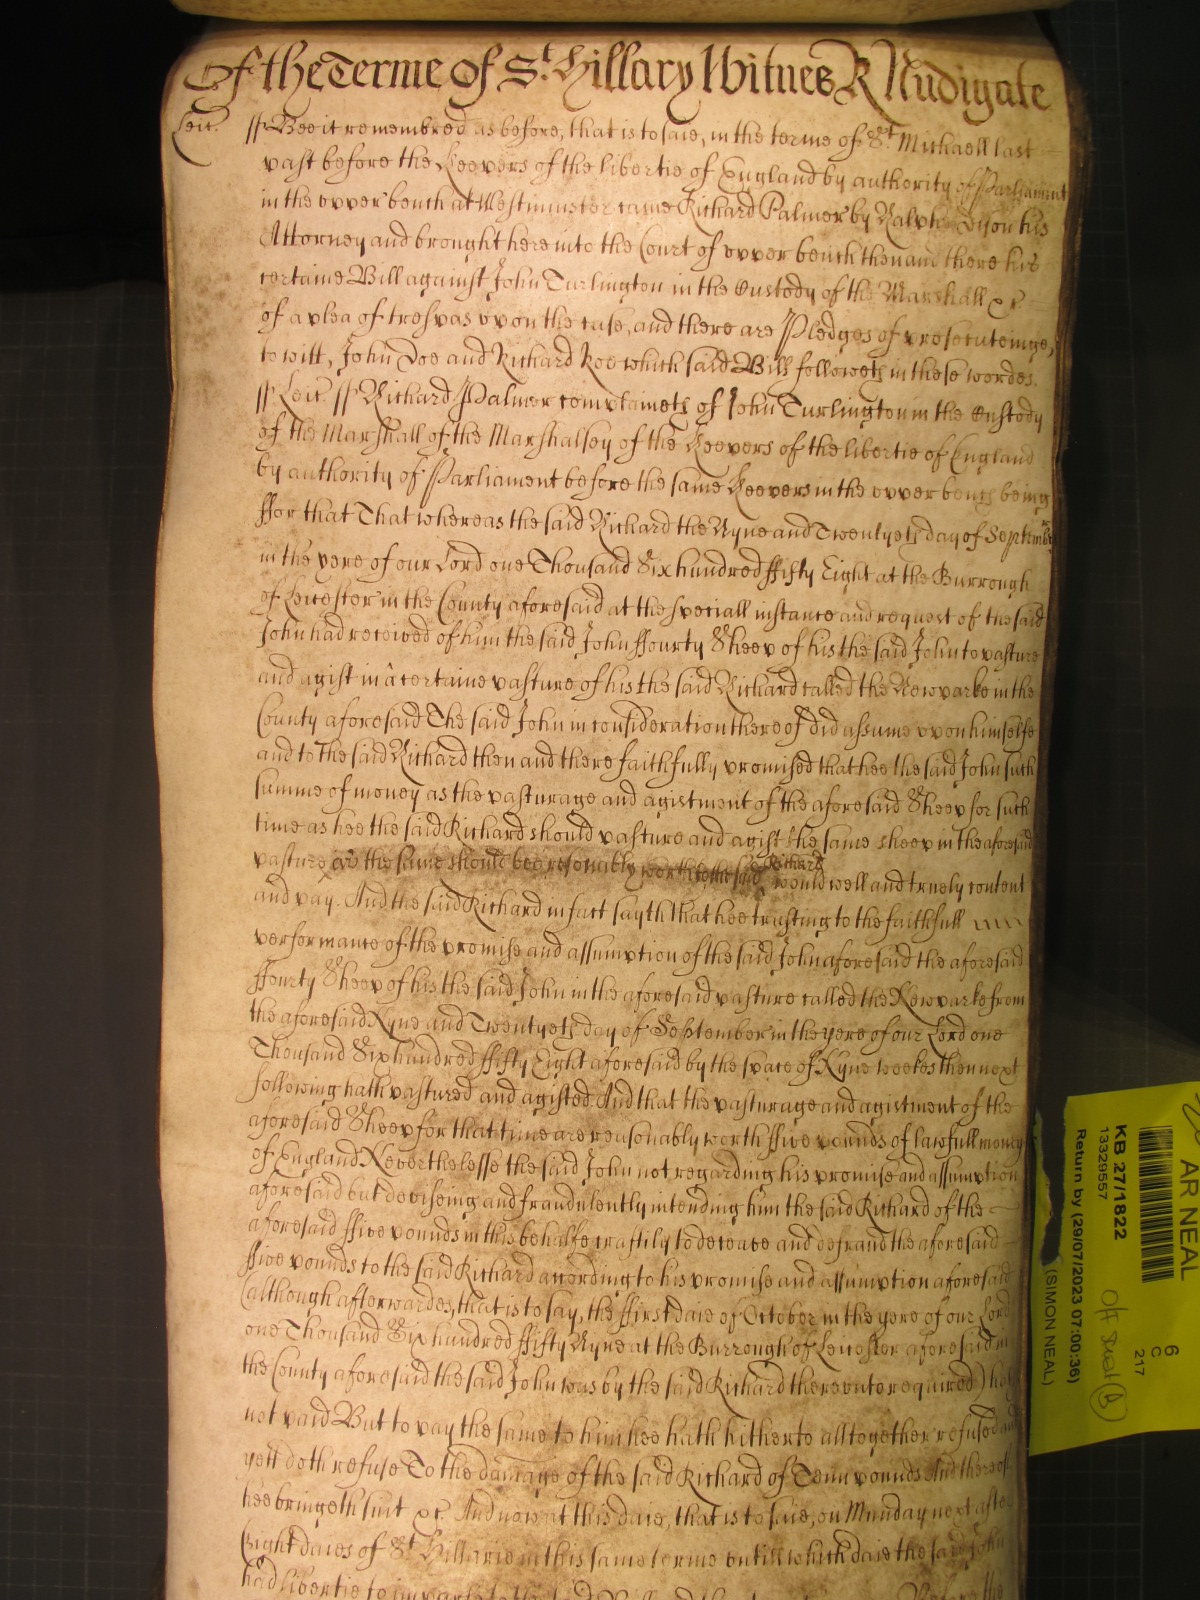 Of the Terme of St. Hillary Witnes R Nudigate
Leic. ss Bee it remembred as before, that is to saie, in the terme of St Michaell last
past before the Keepers of the libertie of England by authority of Parliament
in the upper bench at Westminster came Richard Palmer by Ralph his
Attorney and brought here into the Court of upper bench then and there his
certaine Bill against John Turlington in the Custody of the Marshall &c
of a plea of trespas upon the case, and there are Pledges of prosecuteinge,
to witt, John Doe and Richard Roe which said Bill followeth in these wordes.
ss Leic. ss Richard Palmer complaineth of John Turlington in the Custody
of the Marshall of the Marshalsey of the Keepers of the libertie of England
by authority of Parliament before the same Keepers in the upper bench being
ffor that That whereas the said Richard the Nyne and Twentyeth day of September
in the yere of our Lord one Thousand Six hundred ffifty Eight at the Burrough
of Leicester in the County aforesaid at the speciall instance and request of the said
John had received of him the said John ffourty Sheep of his the said John to pasture
and agist in a certaine pasture of his the said Richard called the Newparke in the
County aforesaid The said John in consideration thereof did assume upon himselfe
and to the said Richard then and there faithfully promised that hee the said John such
summe of money as the pasturage and agistment of the aforesaid Sheep for such
time as hee the said Richard should pasture and agist the same sheep in the aforesaid
pasture, the same should bee resonably worth to the said Richard would well and truely content
and pay. And the said Richard in fact sayth That hee trusting to the faithfull
performance of the promise and assumption of the said John aforesaid the aforesaid
ffourty Sheep of his the said John in the aforesaid pasture called the Newparke from
the aforesaid Nyne and Twentyeth day of September in the yere of our Lord one
Thousand Six hundred ffifty Eight aforesaid by the space of Nyne weekes then next
following hath pastured and agisted And that the pasturage and agistment of the
aforesaid Sheep for that time are reasonably worth ffive pounds of lawfull money
of England Neverthelesse the said John not regarding his promise and assumption
aforesaid but deviseing and fraudulently intending him the said Richard of the
aforesaid ffive pounds in this behalfe craftily to deceave and defraud the aforesaid
ffive pounds to the said Richard according to his promise and assumption aforesaid
(although afterwardes, that is to say, the ffirst daie of October in the yere of our Lord
one Thousand Six hundred ffifty Nyne at the Burrough of Leicester aforesaid in
the County aforesaid the said John was by the said Richard thereunto required)
not paid But to pay the same to him hee hath hitherto alltogether refused and
yett doth refuse To the damage of the said Richard of Tenn pounds And thereof
hee bringeth suit &c. And now at this daie, that is to saie, on Munday next after
Eight daies of St Hillarie in this same terme untill which daie the said John
had libertie to imparle to the
AR NEAL
KB 27/1822
13329557
Return by (29/07/2023 07:00:36)
(SIMON NEAL)
6
C
217